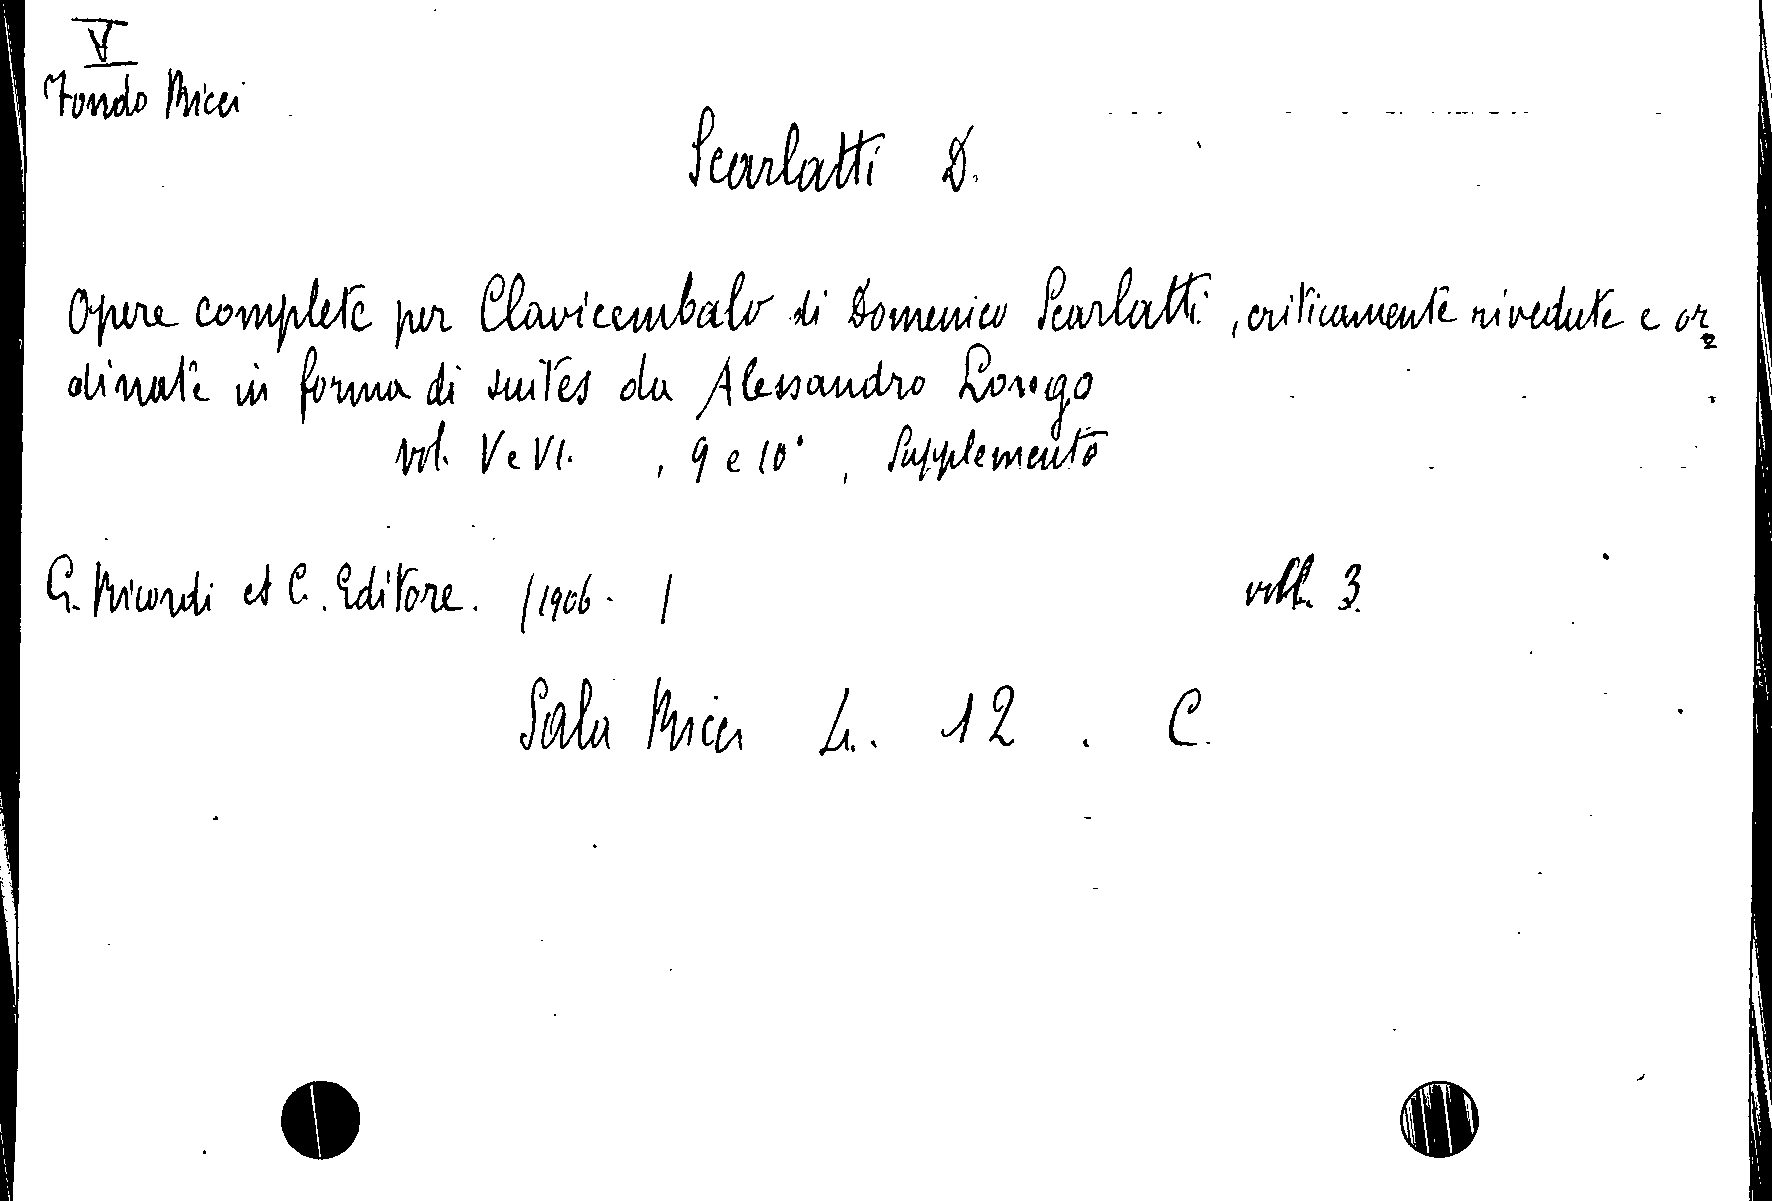 V
Fondo Ricci
Scarlatti D.
Opere complete per Clavicembalo di Domenico Scarlatti, criticamente rivedute e or=
dinate in forma di suites da Alessandro Longo
vol. V e VI. , 9 e 10° , Supplemento
G. Ricordi et C. Editore. /1906 - / voll. 3.
Sala Ricci L. 12. C.